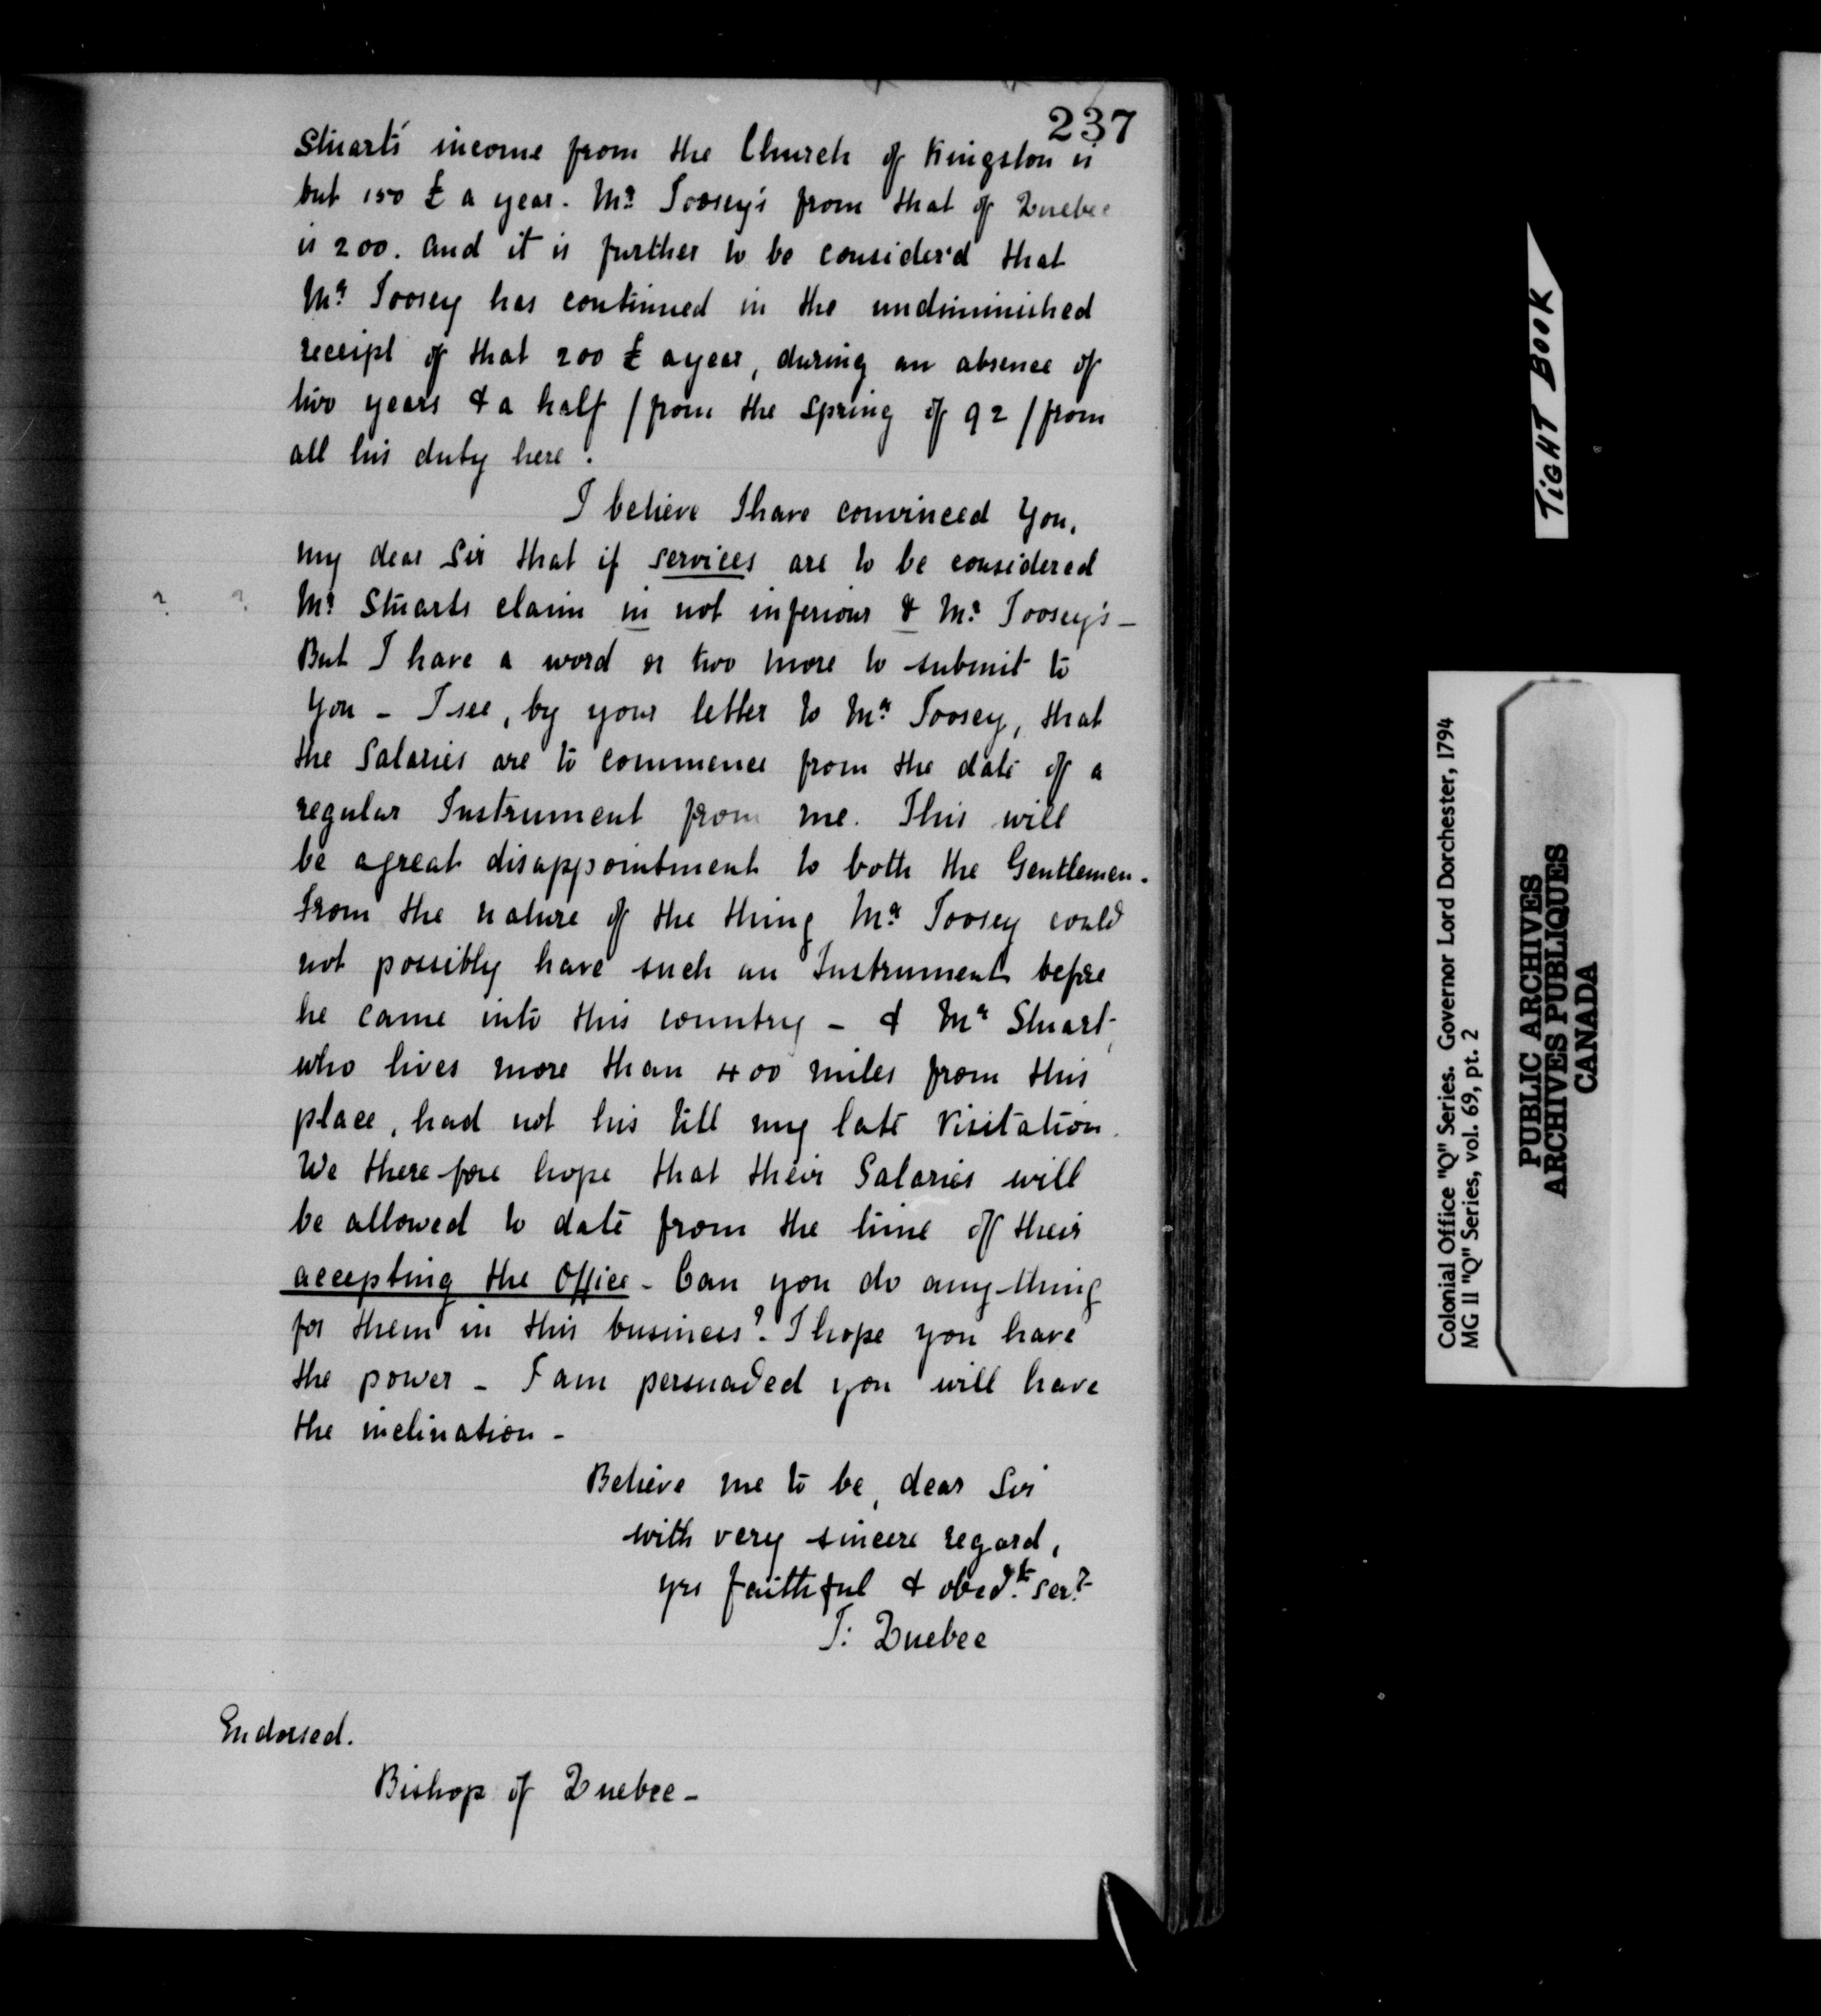 237
Stuart's income from the Church of Kingston is
but 150 £ a year. Mr Toosey's from that of Quebec
is 200. and it is further to be consider'd that
Mr Toosey has continued in the undiminished
receipt of that 200 £ a year, during an absence of
two years & a half / from the Spring of 92 / from
all his duty here.
I believe I have convinced You,
my dear Sir that if services are to be considered
? ? Mr Stuarts claim in not inferiour & Mr Toosey's -
But I have a word or two more to submit to
You - I see, by your letter to Mr Toosey, that
the Salaries are to commence from the date of a
regular Instrument from me. This will
be a great disappointment to both the Gentlemen.
From the nature of the thing Mr Toosey could
not possibly have such an Instrument before
he came into this country - & Mr Stuart,
who lives more than 400 miles from this
place, had not his till my late Visitation.
We there-fore hope that their Salaries will
be allowed to date from the time of their
accepting the Office - Can you do any-thing
for them in this business? I hope you have
the power - I am persuaded you will have
the inclination -
Believe me to be, dear Sir
with very sincere regard,
yrs faithful & obedt. sert
J: Quebec
Endorsed.
Bishop of Quebec -
TIGHT BOOK
Colonial Office "Q" Series. Governor Lord Dorchester, 1794
MG 11 "Q" Series, vol. 69, pt. 2
PUBLIC ARCHIVES
ARCHIVES PUBLIQUES
CANADA